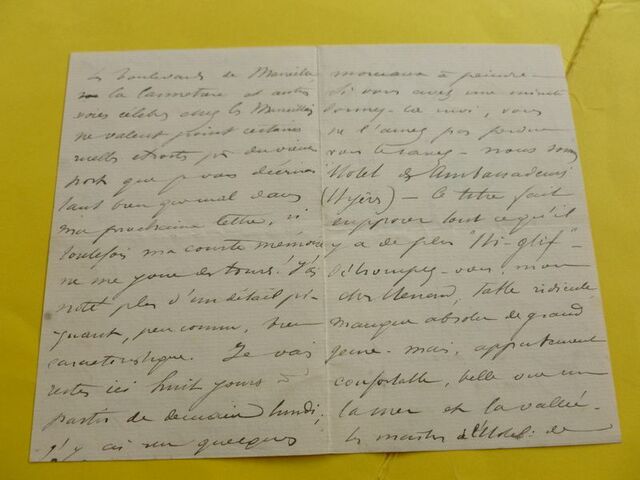 Les boulevards de Marseille,
la Cannebière et autres
voies célèbres chez les Marseillais
ne valent point certaines
ruelles étroites du vieux
port que je vais décrire
tant bien que mal dans
ma prochaine lettre, si
toutefois ma courte mémoire
ne me joue des tours! J'ai
noté plus d'un détail pi-
quant, peu commun, bien
caractéristique. Je vais
rester ici huit jours à
partir de demain lundi;
j'y ai vu quelques
morceaux à peindre –
Si vous avez une minute
donnez-la moi, vous
ne l'aurez pas perdue
nous sommes
Hotel des Ambassadeurs
(Hyères) – le titre fait
supposer tout ce qu'il
y a de plus "Hi-glif" –
Détrompez-vous, mon
cher Menard, table ridicule,
manque absolu de grand
genre – mais, appartement
confortable, belle vue sur
la mer et la vallée –
les master à l'Hotel de